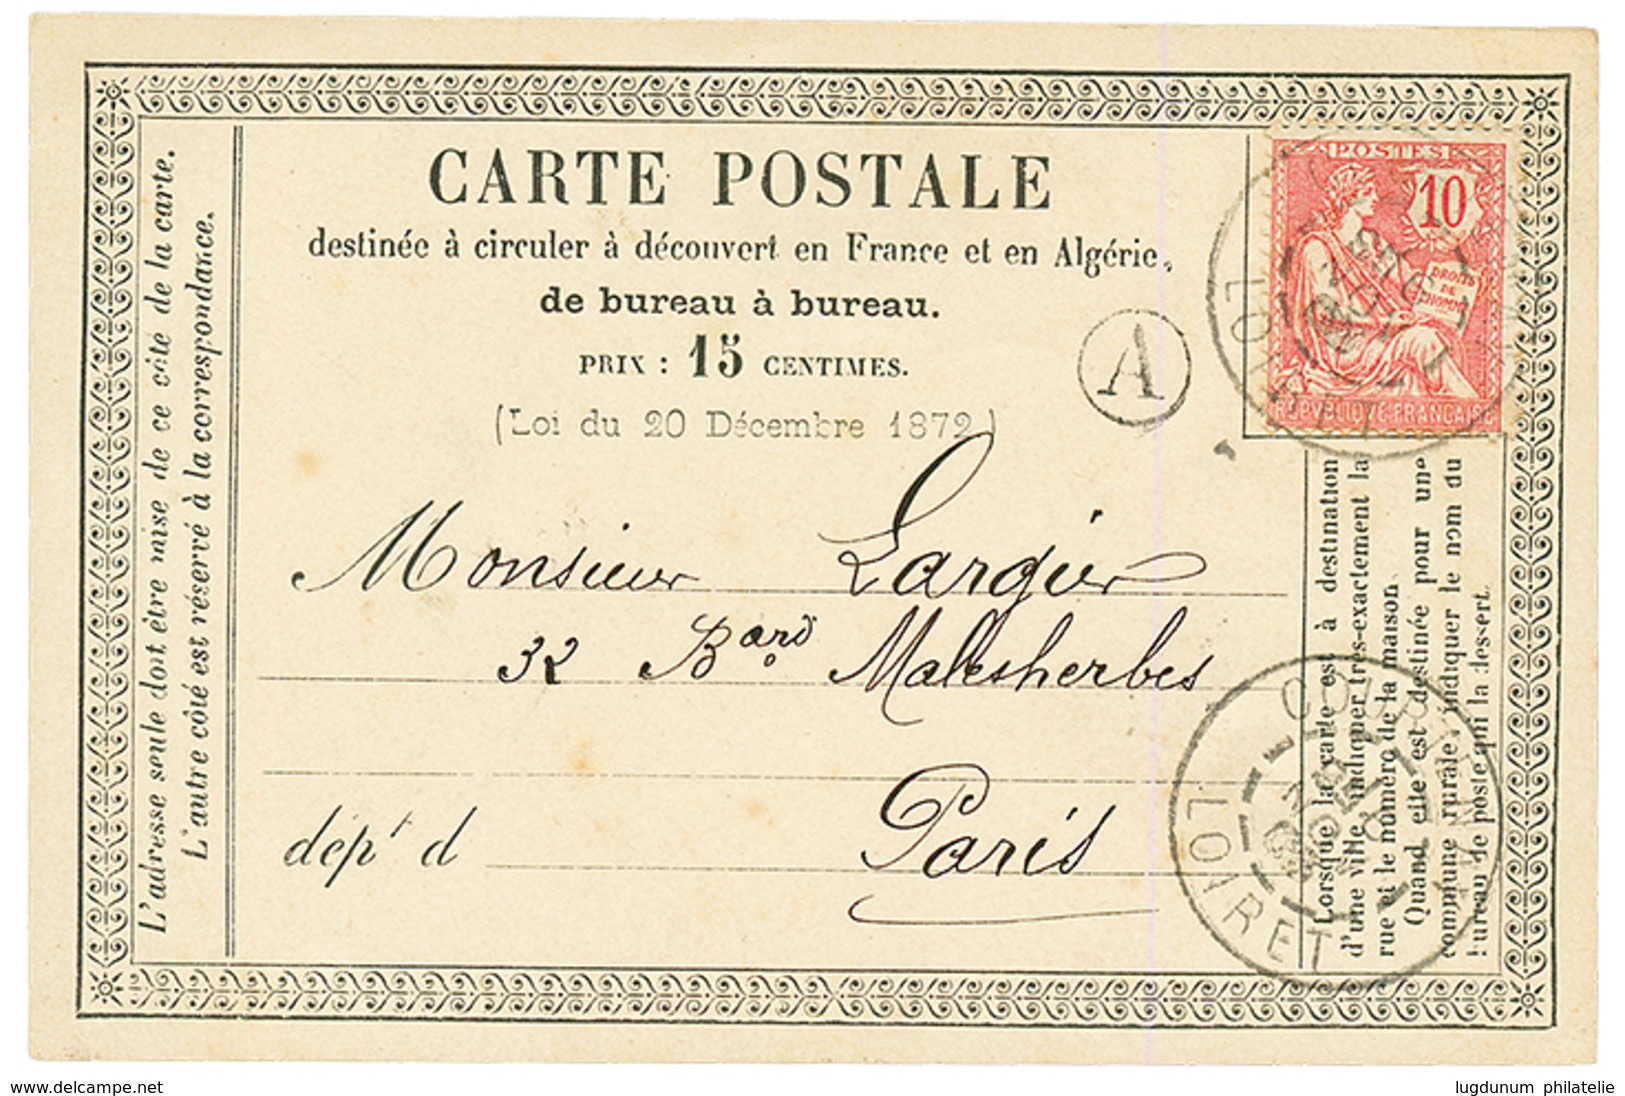 CARTE POSTALE
destinée à circuler à découvert en France et en Algérie,
de bureau à bureau.
PRIX : 15 CENTIMES.
(Loi du 20 Décembre 1872)
A
POSTES
10
DROITS
DE
L'HOMME
REPVBLIQVE FRANÇAISE
LOIRET
Monsieur Largier
32 Bard Malesherbes
Paris
dépt d
L'adresse seule doit être mise de ce côté de la carte.
L'autre côté est réservé à la correspondance.
Lorsque la carte est à destination
d'une ville, indiquer très-exactement la
rue et le numéro de la maison.
Quand elle est destinée pour une
commune rurale, indiquer le nom du
bureau de poste qui la dessert.
LOIRET
www.delcampe.net
lugdunum philatelie